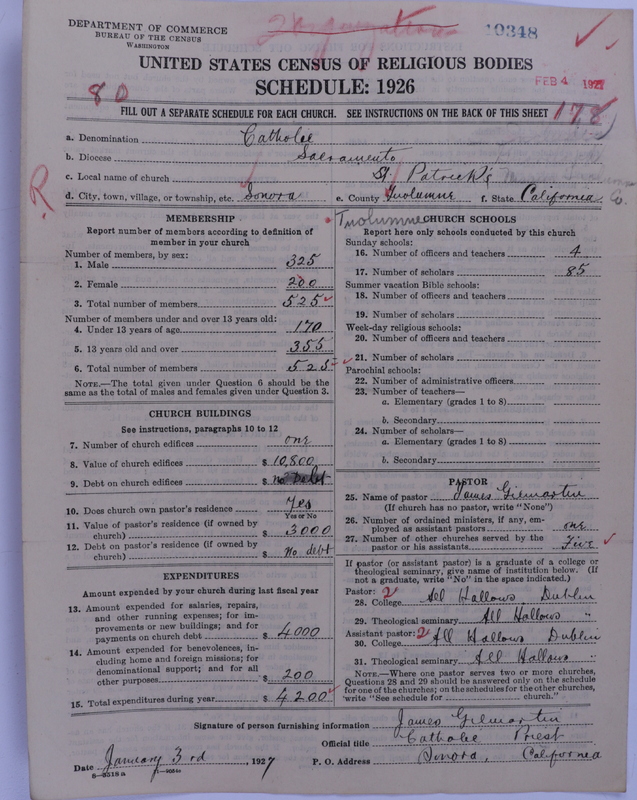 DEPARTMENT OF COMMERCE
BUREAU OF THE CENSUS
WASHINGTON
19348
UNITED STATES CENSUS OF RELIGIOUS BODIES
SCHEDULE: 1926
FEB 4 1927
80
FILL OUT A SEPARATE SCHEDULE FOR EACH CHURCH. SEE INSTRUCTIONS ON THE BACK OF THIS SHEET
178
a. Denomination Catholic
b. Diocese Sacramento
c. Local name of church St Patrick's
d. City, town, village, or township, etc. Sonora e. County Tuolumne f. State California
R
Tuolumne
MEMBERSHIP
Report number of members according to definition of
member in your church
Number of members, by sex:
1. Male 325
2. Female 200
3. Total number of members 525
Number of members under and over 13 years old:
4. Under 13 years of age 170
5. 13 years old and over 355
6. Total number of members 525
NOTE.—The total given under Question 6 should be
same as the total of males and females given under Question 3.
CHURCH BUILDINGS
See instructions, paragraphs 10 to 12
7. Number of church edifices one
8. Value of church edifices $ 10,800
9. Debt on church edifices $ no Debt
10. Does church own pastor's residence Yes
Yes or No
11. Value of pastor's residence (if owned by
church) $ 3000
12. Debt on pastor's residence (if owned by
church) $ no debt
EXPENDITURES
Amount expended by your church during last fiscal year
13. Amount expended for salaries, repairs,
and other running expenses; for im-
provements or new buildings; and for
payments on church debt $ 4000
14. Amount expended for benevolences, in-
cluding home and foreign missions; for
denominational support; and for all
other purposes $ 200
15. Total expenditures during year $ 4200
CHURCH SCHOOLS
Report here only schools conducted by this church
Sunday schools:
16. Number of officers and teachers 4
17. Number of scholars 85
Summer vacation Bible schools:
18. Number of officers and teachers
19. Number of scholars
Week-day religious schools:
20. Number of officers and teachers
21. Number of scholars
Parochial schools:
22. Number of administrative officers
23. Number of teachers—
a. Elementary (grades 1 to 8)
b. Secondary
24. Number of scholars—
a. Elementary (grades 1 to 8)
b. Secondary
PASTOR
25. Name of pastor James Gilmartin
(If church has no pastor, write "None")
26. Number of ordained ministers, if any, em-
ployed as assistant pastors one
27. Number of other churches served by the
pastor or his assistants Five
If pastor (or assistant pastor) is a graduate of a college or
theological seminary, give name of institution below. (If
not a graduate, write "No" in the space indicated.)
Pastor: 2
28. College All Hallows Dublin
29. Theological seminary All Hallows "
Assistant pastor: 2
30. College All Hallows Dublin
31. Theological seminary All Hallows "
NOTE.—Where one pastor serves two or more churches,
Questions 28 and 29 should be answered only on the schedule
for one of the churches; on the schedules for the other churches,
write "See schedule for church."
Signature of person furnishing information James Gilmartin
Official title Catholic Priest
Date January 3rd, 1927 P. O. Address Sonora, California
8—3518a